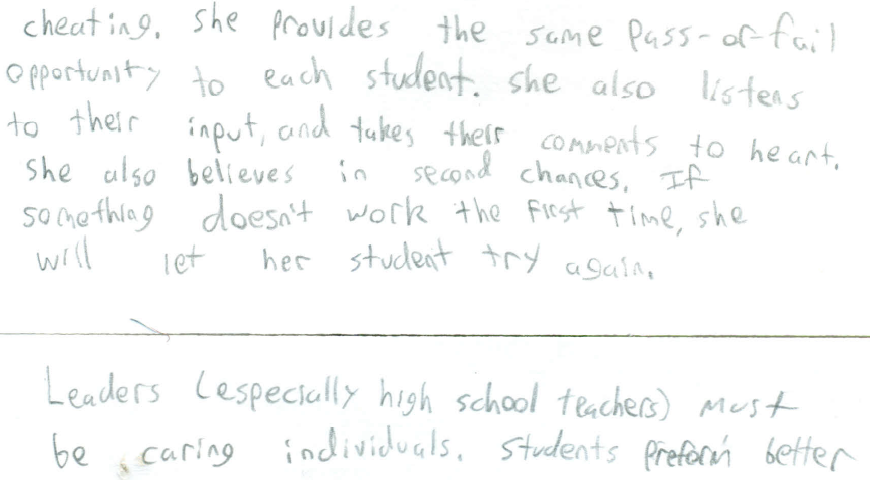 cheating. she provides the same Pass-or-fail
opportunity to each student. she also listens
to their input, and takes their comments to heart.
she also believes in second chances. If
something doesn't work the first time, she
will let her student try again.
Leaders (especially high school teachers) must
be caring individuals. students preform better